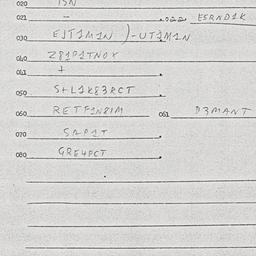 020 ISN
021 – .022 ESRND1K
030 EJT1M1N )-UT1M1N
040 Z81P1TNOX
041 +
050 S+L1K83RCT
060 RETF1N8IM 061 D3MANT
070 SAP1T
080 GRE4PCT